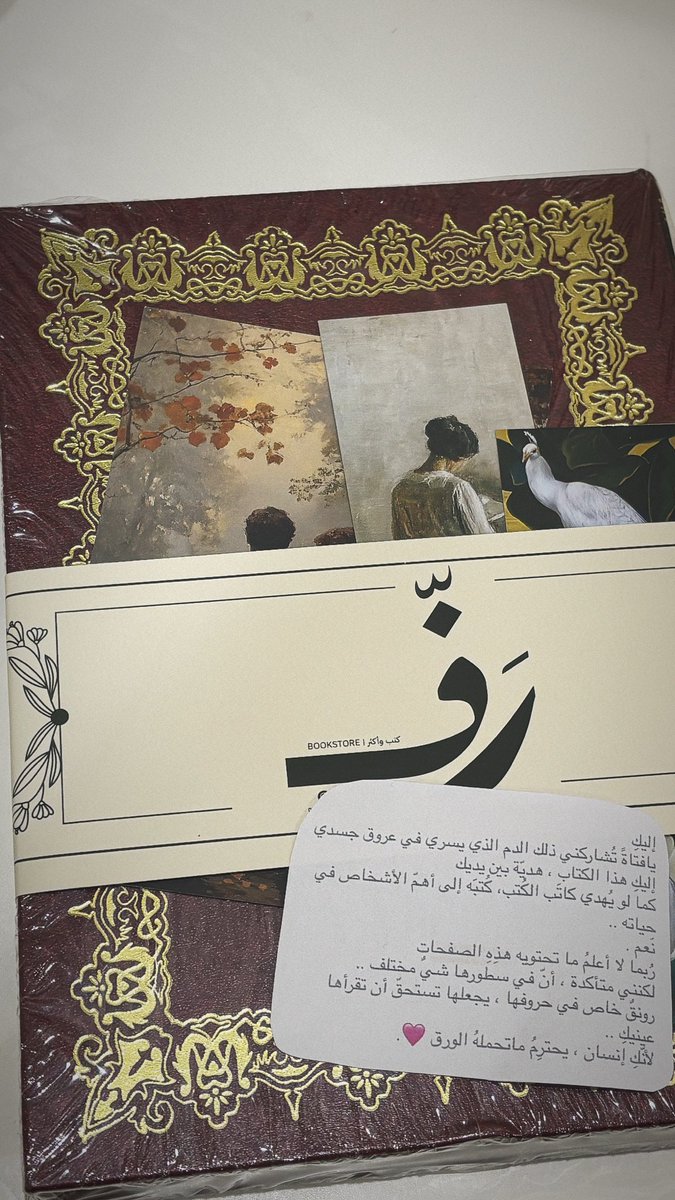 رَفّ
BOOKSTORE | كتب وأكثر
إليكِ
يافتاةً تُشاركني ذلك الدم الذي يسري في عروق جسدي
إليكِ هذا الكتاب ، هديّة بين يديك
كما لو يُهدي كاتَب الكُتب، كُتبَه إلى أهمّ الأشخاص في
حياته ..
نَعم .
رُبما لا أعلمُ ما تحتويه هذهِ الصفحات
لكنني متأكدة ، أنّ في سطورها شيءٌ مختلف ..
رونقٌ خاص في حروفها ، يجعلها تستحقّ أن تقرأها
عينيكِ ..
لأنّكِ إنسان ، يحترِمُ ماتحملهُ الورق 💗 .